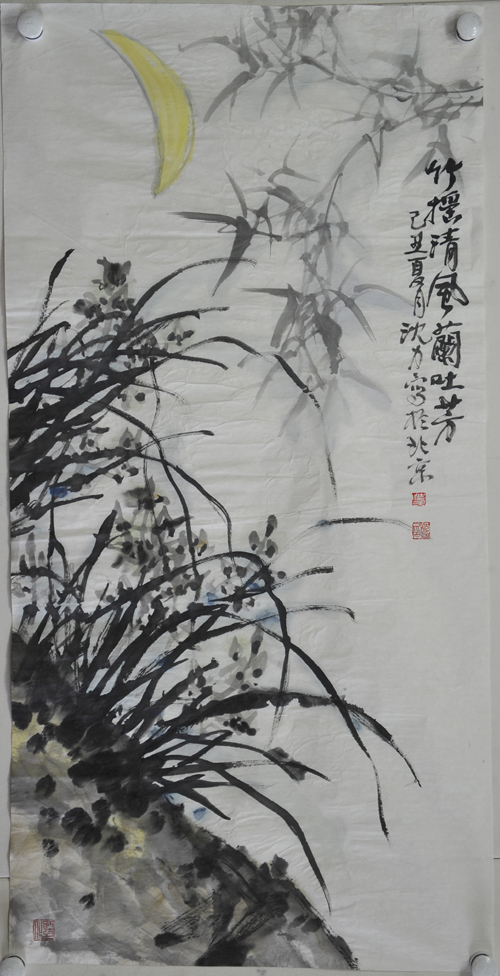 竹摇清风蘭吐芳
己丑夏月沈力寫於北京